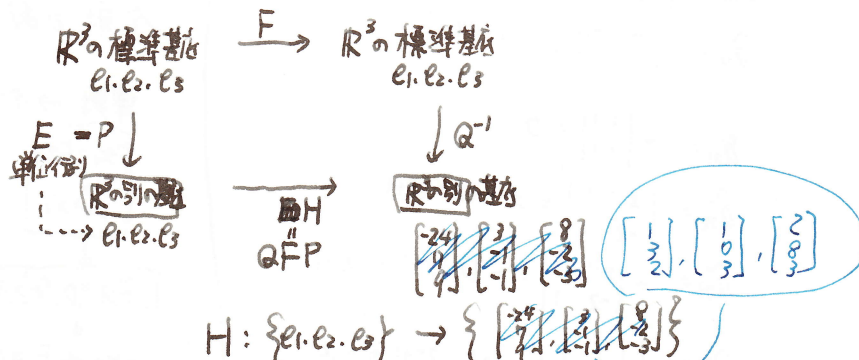 R³の標準基底 F R³の標準基底
e₁.e₂.e₃ e₁.e₂.e₃
E = P Q⁻¹
単位行列
R³の別の基底 R³の別の基底
e₁.e₂.e₃ H
"
QFP
[-24 ], [3 -1 -1], [8 -2 -3] [1 3 2], [1 0 3], [2 8 3]
H : {e₁.e₂.e₃} → { [-24 ], [ -1 -1], [8 -2 -3] }